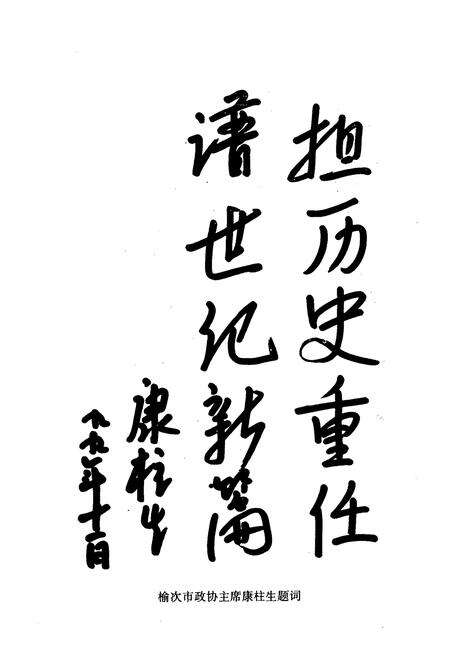 担历史重任
谱世纪新篇
康柱生
一九九九年十一月
榆次市政协主席康柱生题词